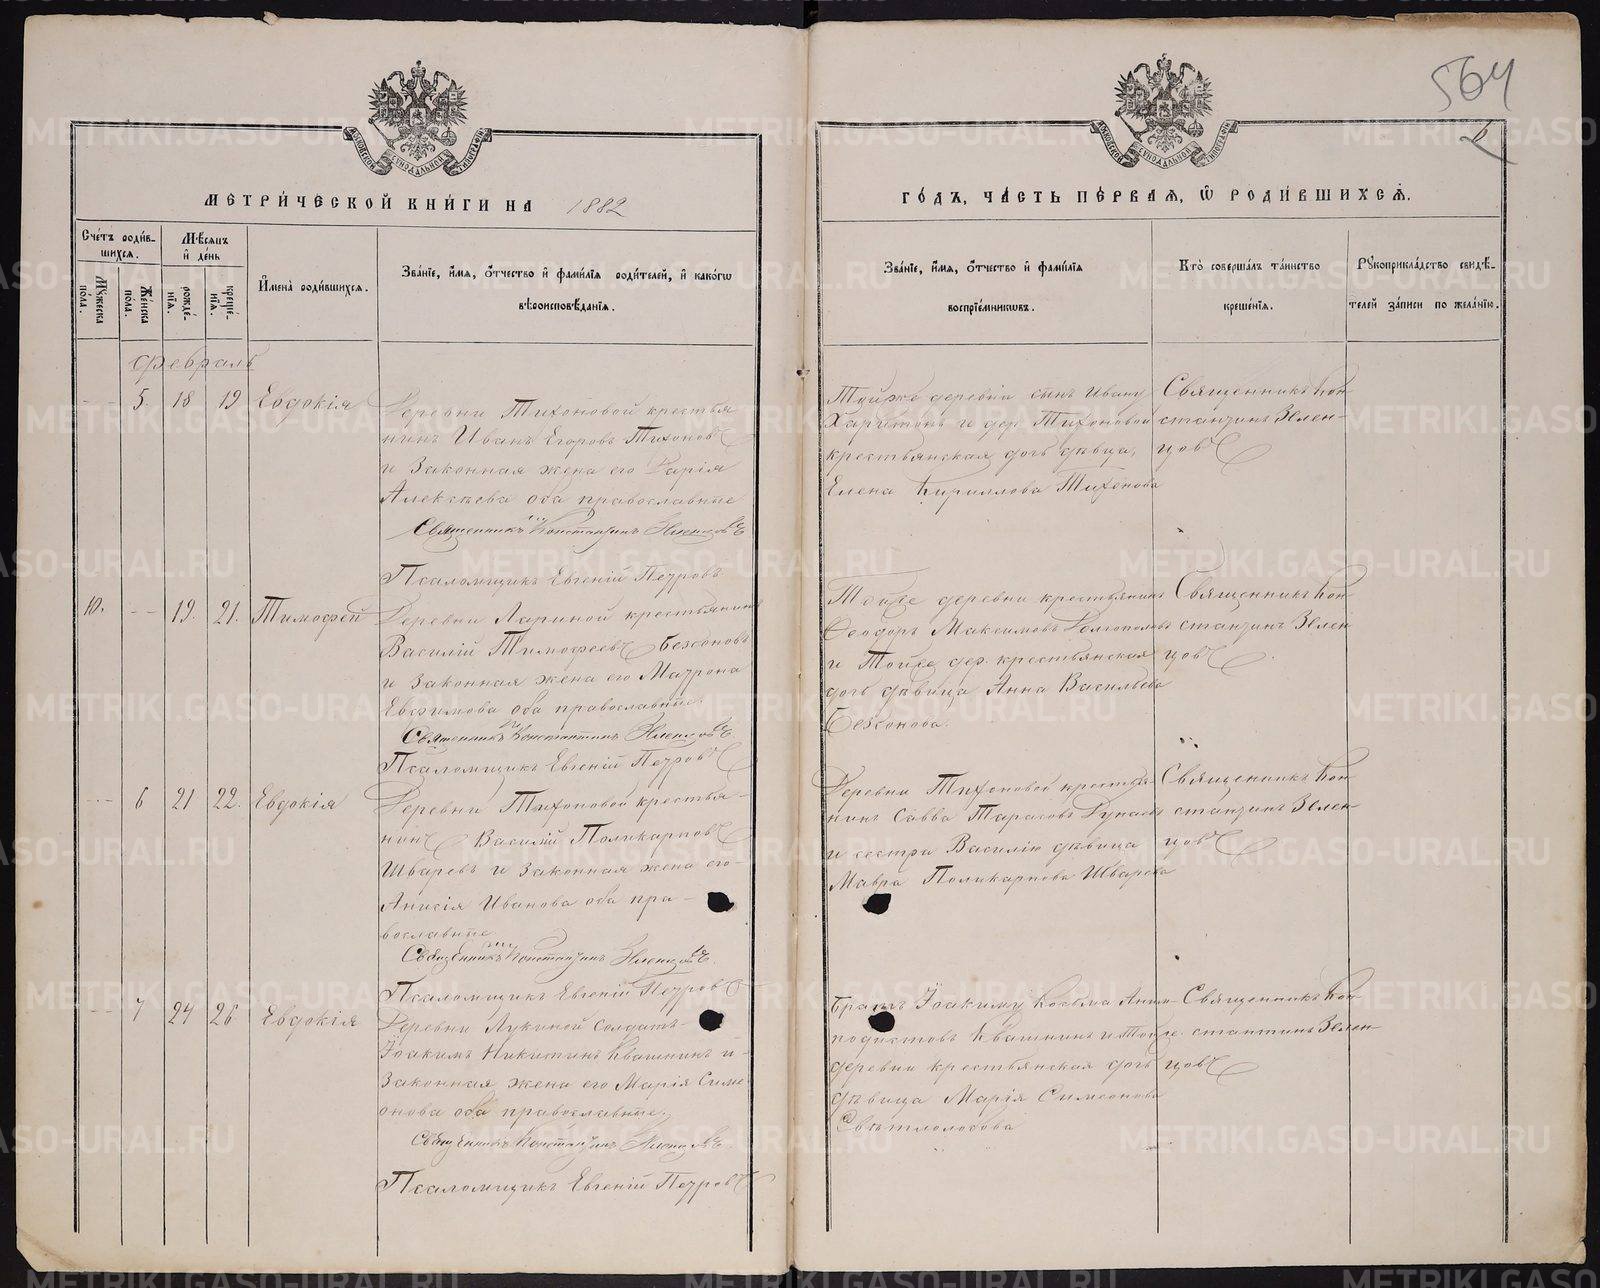 564
6
МЕТРИ́ЧЕСКОЙ КНИ́ГИ НА 1882
ГО́ДЪ, ЧА́СТЬ ПЕ́РВАЯ, Ѿ РОДИ́ВШИХСѦ.
Сче́тъ роди́в-
шихся.
Мѣсяцъ
и҆ де́нь
Му́жеска по́ла.
Же́нска по́ла.
рожде́-
нїя.
креще́-
нїя.
И҆мена̀ роди́вшихся.
Зва́нїе, и҆́мя, ѻ҆́тчество и҆ фами́лїя роди́телей, и҆ како́гѡ
вѣроисповѣ́данїя.
Зва́нїе, и҆́мя, ѻ҆́тчество и҆ фами́лїя
воспрїе́мникѡвъ.
Кто̀ соверша́лъ та́инство
креще́нїя.
Рꙋкоприкла́дство свидѣ́-
телей за́писи по жела́нїю.
Февраль
5. 18 19 Евдокія
Деревни Тихоновой крестья
нинъ Иванъ Егоровъ Тихоновъ
и законная жена его Дарія
Алексѣева оба православные
Священникъ Константинъ Зеленцовъ
Псаломщикъ Евгеній Петровъ
Тойже деревни сынъ Ивану
Харитонъ и дер. Тихоновой
крестьянская дочь дѣвица,
Елена Кириллова Тихонова
Священникъ Кон
стантинъ Зелен-
цовъ
10. 19. 21. Тимофей
Деревни Лариной крестьянинъ
Василій Тимофеевъ Безсоновъ
и законная жена его Матрона
Евфимова оба православные.
Священникъ Константинъ Зеленцовъ
Псаломщикъ Евгеній Петровъ
Тойже деревни крестьянинъ
Феодоръ Максимовъ Долгополовъ
и тойже дер. крестьянская
дочь дѣвица Анна Васильева
Безсонова.
Священникъ Кон
стантинъ Зелен
цовъ
6 21 22. Евдокія
Деревни Тихоновой крестья-
нинъ Василій Поликарповъ
Шваревъ и законная жена его
Анисія Иванова оба пра-
вославные
Священникъ Константинъ Зеленцовъ
Псаломщикъ Евгеній Петровъ
Деревни Тихоновой крестья-
нинъ Савва Тарасовъ Дунаевъ
и сестра Василію дѣвица
Мавра Поликарпова Шварева
Священникъ Кон
стантинъ Зелен
цовъ
7 24 26 Евдокія
Деревни Лукиной солдатъ
Іоакимъ Никитинъ Квашнинъ и
законная жена его Марія Симе
онова оба православные.
Священникъ Константинъ Зеленцовъ
Псаломщикъ Евгеній Петровъ
Братъ Іоакиму Косьма
Квашнинъ и тойже
деревни крестьянская дочь
дѣвица Марія Симеонова
Свѣтлолобова
Священникъ Кон-
стантинъ Зелен-
цовъ